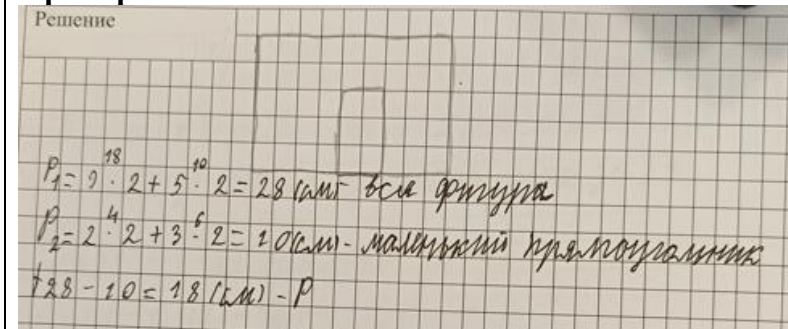 Решение
18 10
P₁= 9 · 2 + 5 · 2 = 28 (см) - вся фигура
4 6
P₂= 2 · 2 + 3 · 2 = 10 (см) - маленький прямоугольник
28 - 10 = 18 (см) - P